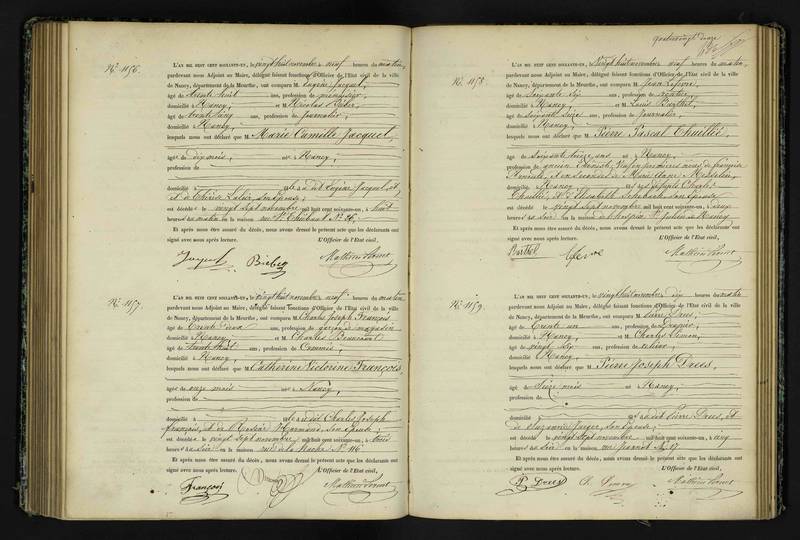 No. 1156.
L'AN MIL HUIT CENT SOIXANTE-UN, le vingt huit novembre neuf heures du matin,
pardevant nous Adjoint au Maire, délégué faisant fonctions d'Officier de l'Etat civil de la ville
de Nancy, département de la Meurthe, ont comparu M. Eugène Jacquel,
âgé de trente huit ans, profession de menuisier,
domicilié à Nancy, et M. Nicolas
âgé de trente cinq ans, profession de journalier,
domicilié à Nancy,
lesquels nous ont déclaré que M. Marie Camille Jacquel,
âgée de dix mois, né à Nancy;
profession de
domicilié à fille dudit Eugène Jacquel, et
de Thérèse son épouse;
est décédée le vingt sept novembre mil huit cent soixante-un, à huit
heures du matin en la maison rue St Thiébaut No 26;
Et après nous être assuré du décès, nous avons dressé le présent acte que les déclarants ont
signé avec nous après lecture. L'Officier de l'Etat civil,
Jacquel
No. 1157.
L'AN MIL HUIT CENT SOIXANTE-UN, le vingt huit novembre neuf heures du matin,
pardevant nous Adjoint au Maire, délégué faisant fonctions d'Officier de l'Etat civil de la ville
de Nancy, département de la Meurthe, ont comparu M. Charles Joseph François
âgé de trente deux ans, profession de garçon de magasin
domicilié à Nancy, et M. Charles
âgé de trente huit ans, profession de Commis,
domicilié à Nancy,
lesquels nous ont déclaré que M. Catherine Victorine François
âgée de onze mois né à Nancy,
profession de
domicilié à fille dudit Charles Joseph
François, et de Rosine Harmand, son épouse;
est décédée le vingt sept novembre mil huit cent soixante-un, à trois
heures du soir en la maison rue de la No 116
Et après nous être assuré du décès, nous avons dressé le présent acte que les déclarants ont
signé avec nous après lecture. L'Officier de l'Etat civil,
François
quatrevingt douze
No. 1158.
L'AN MIL HUIT CENT SOIXANTE-UN, le Vingt huit novembre neuf heures du matin,
pardevant nous Adjoint au Maire, délégué faisant fonctions d'Officier de l'Etat civil de la ville
de Nancy, département de la Meurthe, ont comparu M. Jean Lefevre,
âgé de soixante six ans, profession de rentier,
domicilié à Nancy, et M. Louis Barthel,
âgé de soixante seize ans, profession de journalier,
domicilié à Nancy,
lesquels nous ont déclaré que M. Pierre Pascal Thuillié,
âgé de soixante treize ans né à Nancy,
profession de ancien Veuf en premières noces de françoise
et en secondes de Marie Anne
domicilié à Nancy fils de Charles
Thuillié, et d'Elisabeth son épouse
est décédé le vingt sept novembre mil huit cent soixante-un, à deux
heures du soir en la maison de l'hospice St Julien de Nancy
Et après nous être assuré du décès, nous avons dressé le présent acte que les déclarants ont
signé avec nous après lecture. L'Officier de l'Etat civil,
Barthel Lefevre
No. 1159.
L'AN MIL HUIT CENT SOIXANTE-UN, le vingt huit novembre dix heures du matin
pardevant nous Adjoint au Maire, délégué faisant fonctions d'Officier de l'Etat civil de la ville
de Nancy, département de la Meurthe, ont comparu M. Pierre Drees,
âgé de trente un ans, profession de
domicilié à Nancy, et M. Charles Simon,
âgé de vingt six ans, profession de relieur,
domicilié à Nancy,
lesquels nous ont déclaré que M. Pierre Joseph Drees,
âgé de seize mois né à Nancy,
profession de
domicilié à fils dudit Pierre Drees, et
de Suzanne Jaeger, son épouse;
est décédé le vingt sept novembre mil huit cent soixante-un, à cinq
heures du soir en la maison rue Jeannot No 17
Et après nous être assuré du décès, nous avons dressé le présent acte que les déclarants ont
signé avec nous après lecture. L'Officier de l'Etat civil,
P. Drees Ch. Simon